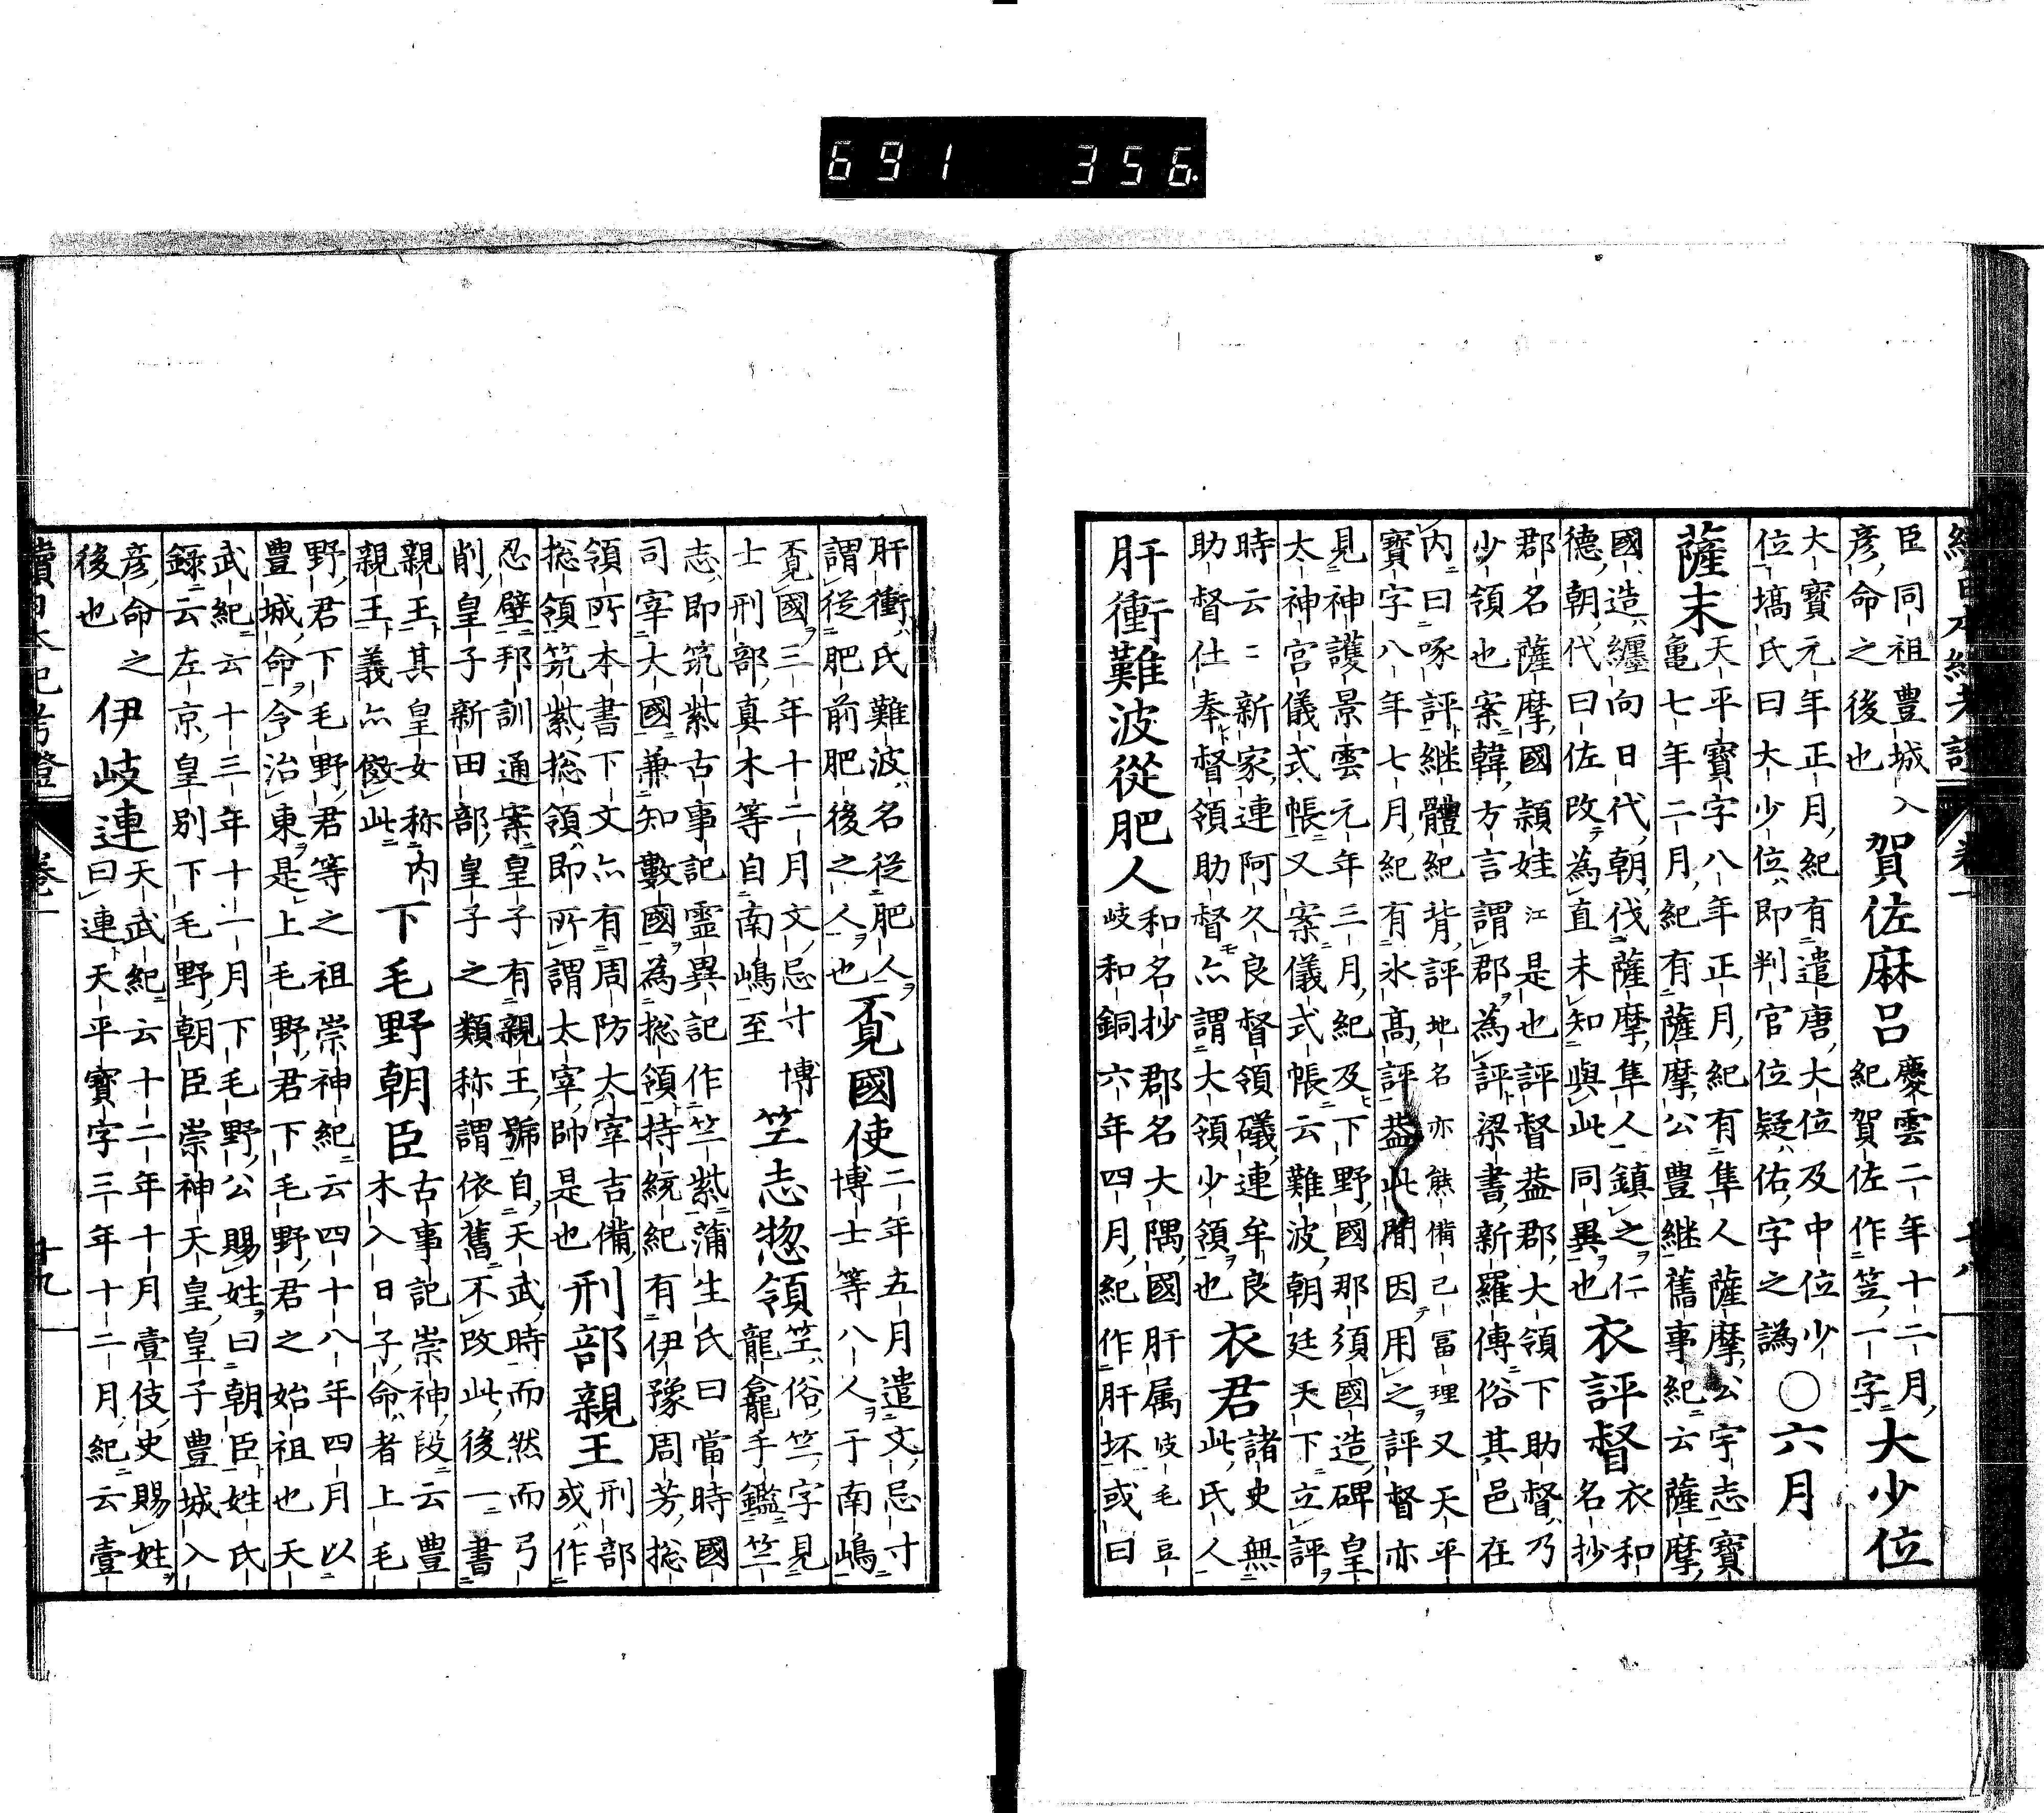 691 356
臣同祖豊城入
彦命之後也
賀佐麻呂
慶雲二年十二月
紀賀佐作笠一字
大少位
大寶元年正月紀有遣唐大位及中位少
位塙氏曰大少位即判官位疑佑字之譌
○六月
薩末
天平寶字八年正月紀有隼人薩摩公宇志寶
亀七年二月紀有薩摩公豊継舊事紀云薩摩
國造纒向日代朝伐薩摩隼人鎮之仁
德朝代曰佐改為直未知與此同異也
衣評督
衣和
名抄
郡名薩摩國頴娃江是也評督蓋郡大領下助督乃
少領也案韓方言謂郡為評梁書新羅傳俗其邑在
内曰啄評継體紀背評地名亦熊備己富理又天平
寶字八年七月紀有氷高評蓋此間因用之評督亦
見神護景雲元年三月紀及下野國那須國造碑皇
太神宮儀式帳又案儀式帳云難波朝廷天下立評
時云〻新家連阿久良督領礒連牟良
助督仕奉督領助督亦謂大領少領也
衣君
諸史無
此氏人
肝衝難波從肥人
和名抄郡名大隅國肝属岐毛豆
岐和銅六年四月紀作肝坏或曰
肝衝氏難波名從肥人
謂從肥前肥後之人也
覔國使
二年五月遣文忌寸
博士等八人于南嶋
覔國三年十二月文忌寸博
士刑部真木等自南嶋至
笠志惣領
笠俗竺字見
龍龕手鑑竺
志即筑紫古事記靈異記作竺紫蒲生氏曰當時國
司宰大國兼知數國為惣領持統紀有伊豫周芳惣
領所本書下文亦有周防大宰吉備
惣領筑紫惣領即所謂太宰帥是也
刑部親王
刑部
或作
忍壁邦訓通案皇子有親王號自天武時而然而弓
削皇子新田部皇子之類称謂依舊不改此後一書
親王其皇女称内
親王義亦倣此
下毛野朝臣
古事記崇神段云豊
木入日子命者上毛
野君下毛野君等之祖崇神紀云四十八年四月以
豊城命令治東是上毛野君下毛野君之始祖也天
武紀云十三年十一月下毛野公賜姓曰朝臣姓氏
錄云左京皇別下毛野朝臣崇神天皇皇子豊城入
彦命之
後也
伊岐連
天武紀云十二年十月壹伎史賜姓
曰連天平寶字三年十二月紀云壹
續日本紀考證 卷一 十九